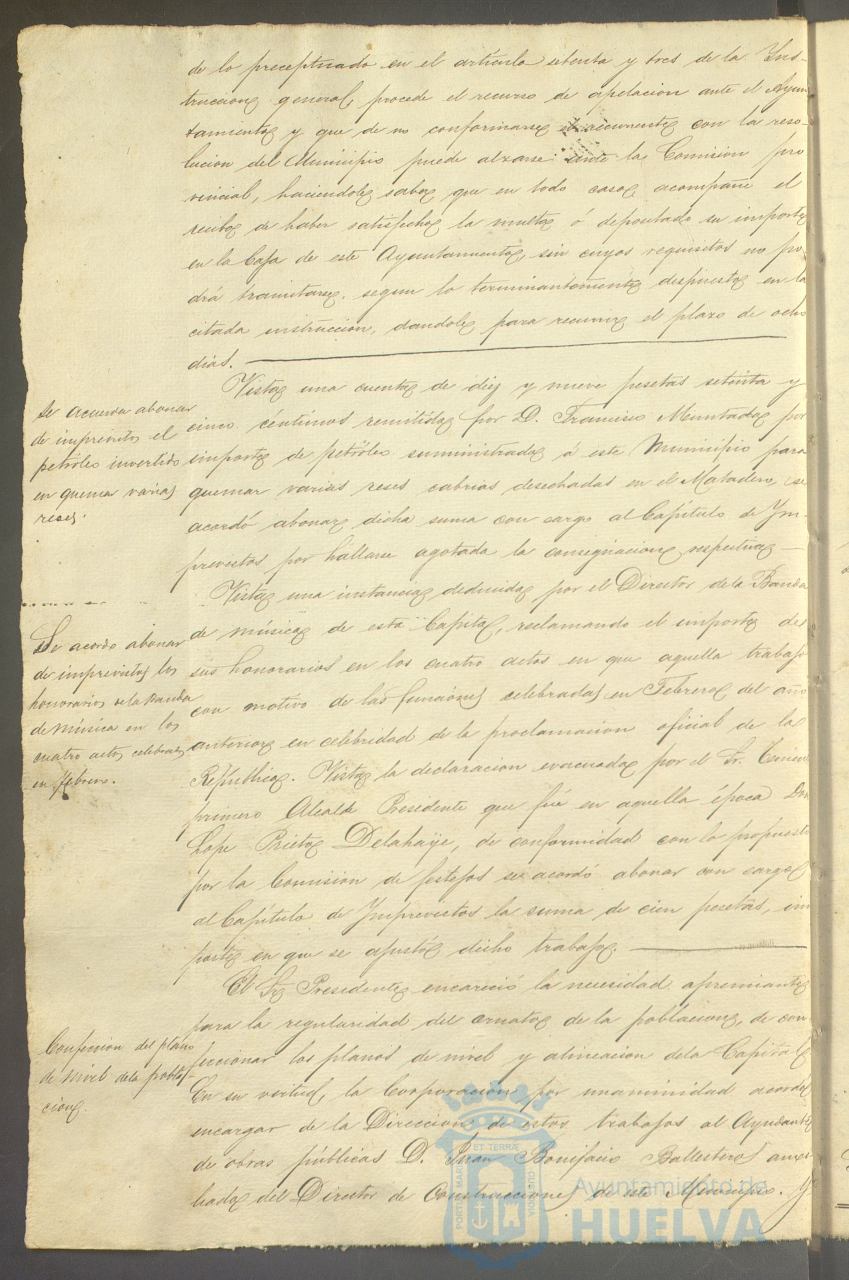 de lo preceptuado en el artículo setenta y tres de la Ins-
truccion general, procede el recurso de apelacion ante el Ayun
tamiento y que de no conformarse el recurrente con la reso-
lucion del Municipio puede alzarse ante la Comision pro
vincial, haciendole saber que en todo caso acompañe el
recibo de haber satisfecho la multa ó depositado su importe
en la Caja de este Ayuntamiento, sin cuyos requisitos no po-
drá tramitarse, segun lo terminantemente dispuesto en la
citada instruccion, dandole para recurrir el plazo de ocho
dias.
Se acuerda abonar
de imprevistos el
petróleo invertido
en quemar varias
reses.
Vista una cuenta de diez y nueve pesetas setenta y
cinco céntimos remitida por D. Francisco Muntada por
importe de petróleo suministrado á este Municipio para
quemar varias reses cabrias desechadas en el Matadero, se
acordó abonar dicha suma con cargo al Capítulo de Im-
previstos por hallarse agotada la consignacion respectiva
Se acordo abonar
de imprevistos los
honorarios de la Banda
de música en los
cuatro actos celebrados
en Febrero.
Vista una instancia deducida por el Director de la Banda
de música de esta Capital, reclamando el importe de
sus honorarios en los cuatro actos en que aquella trabajó
con motivo de las funciones celebradas en Febrero del año
anterior en celebridad de la proclamacion oficial de la
República. Vista la declaracion evacuada por el Sr. Teniente
primero Alcalde Presidente que fué en aquella época Don
Lope Prieto Delahaye, de conformidad con lo propuesto
por la Comision de festejos se acordó abonar con cargo
al Capítulo de Imprevistos la suma de cien pesetas, im
porte en que se ajustó dicho trabajo.
Confeccion del plano
de nivel de la pobla-
cion.
El Sr Presidente encareció la necesidad apremiante
para la regularidad del ornato de la poblacion, de con
feccionar los planos de nivel y alineacion de la Capital
En su virtud, la Corporacion por unanimidad acordó
encargar de la Direccion de estos trabajos al Ayudante
de obras públicas D. Juan Bonifacio Ballesteros auxi
liado del Director de Construcciones de este Municipio. Y
PORTUS MARIS
ET TERRÆ
CUSTODIA
Ayuntamiento de
HUELVA